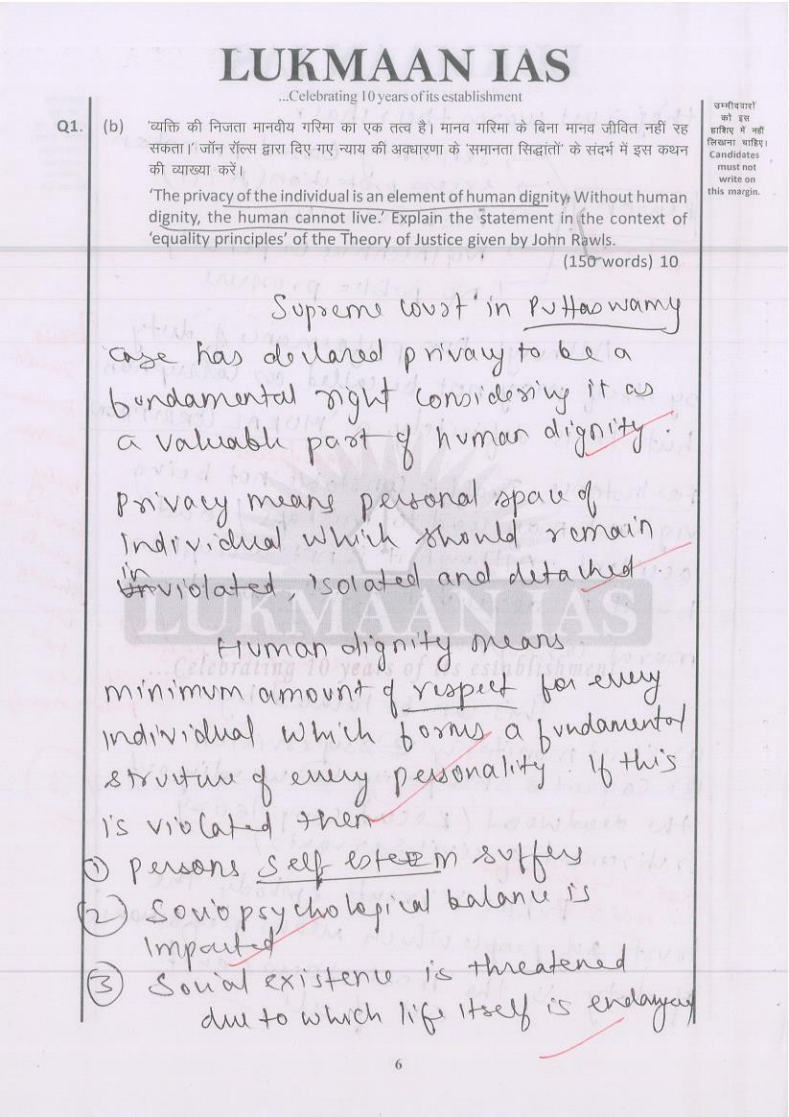 LUKMAAN IAS
...Celebrating 10 years of its establishment
उम्मीदवारों
को इस
हाशिए में नहीं
लिखना चाहिए।
Candidates
must not
write on
this margin.
Q1. (b) 'व्यक्ति की निजता मानवीय गरिमा का एक तत्व है। मानव गरिमा के बिना मानव जीवित नहीं रह
सकता।' जॉन रॉल्स द्वारा दिए गए न्याय की अवधारणा के 'समानता सिद्धांतों' के संदर्भ में इस कथन
की व्याख्या करें।
'The privacy of the individual is an element of human dignity. Without human
dignity, the human cannot live.' Explain the statement in the context of
'equality principles' of the Theory of Justice given by John Rawls.
(150 words) 10
Supreme Court in Puttaswamy
case has declared privacy to be a
fundamental right considering it as
a valuable part of human dignity.
Privacy means personal space of
individual which should remain
inviolated, isolated and detached
LUKMAAN IAS
...Celebrating 10 years of its establishment
Human dignity means
minimum amount of respect for every
individual which forms a fundamental
structure of every personality. If this
is violated then
① Persons self esteem suffers
② Sociopsychological balance is
impacted
③ Social existence is threatened
due to which life itself is endangered
6